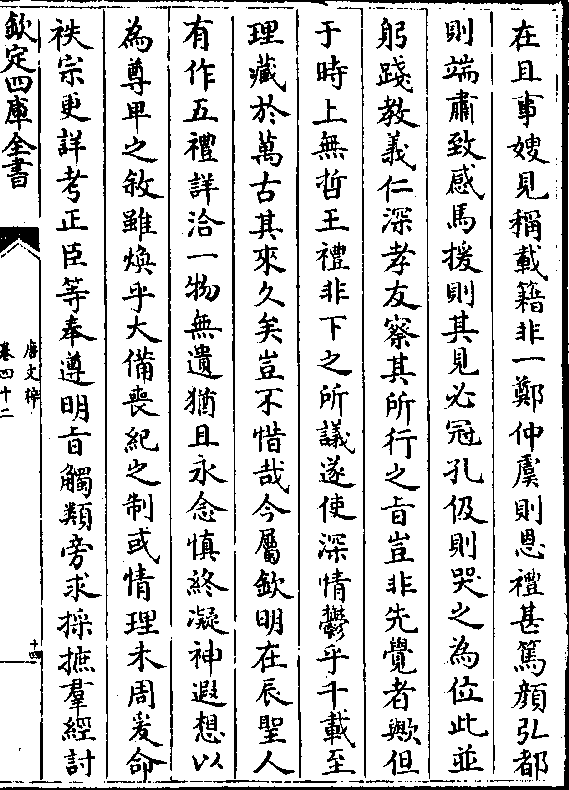 在且事嫂見稱載籍非一鄭仲虞則恩禮甚篤顔弘都
則端肅致感馬援則其見必冠孔伋則哭之為位此並
躬踐教義仁深孝友察其所行之旨豈非先覺者歟但
于時上無哲王禮非下之所議遂使深情鬱乎千載至
理藏於萬古其來久矣豈不惜哉今屬欽明在辰聖人
有作五禮詳洽一物無遺猶且永念慎終凝神遐想以
為尊卑之敘雖煥乎大備喪紀之制或情理未周爰命
秩宗更詳考正臣等奉遵明旨觸類旁求採摭羣經討
欽定四庫全書
唐文粹
卷四十二
十四